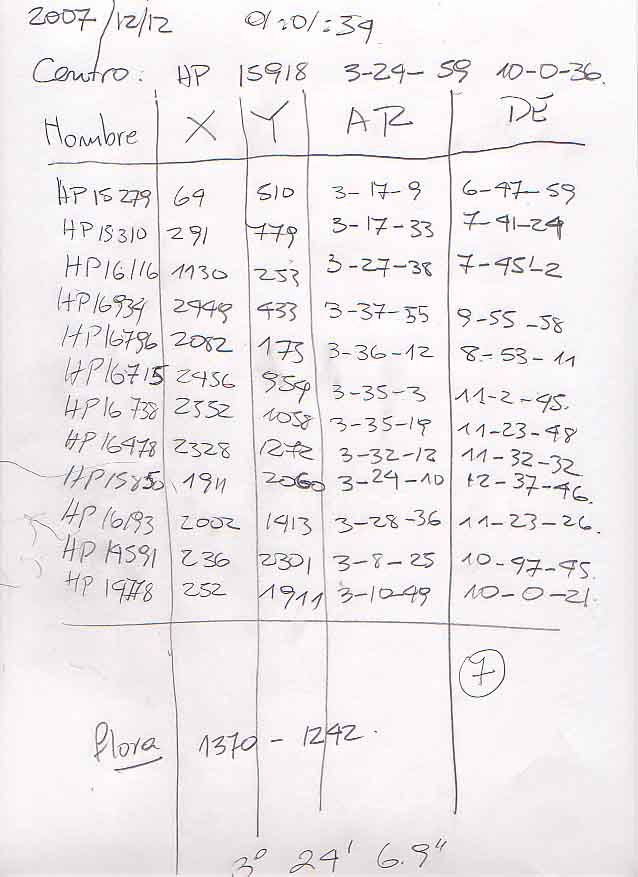 2007/12/12 01:01:34
Centro: HP 15918 3-24-59 10-0-36.
Nombre X Y AR DE
HP15279 69 510 3-17-9 6-47-59
HP15310 291 779 3-17-33 7-41-24
HP16116 1130 253 3-27-38 7-45-2
HP16934 2449 433 3-37-55 9-55-58
HP16796 2082 173 3-36-12 8-53-11
HP16715 2456 954 3-35-3 11-2-45.
HP16738 2352 1058 3-35-19 11-23-48
HP16478 2328 1272 3-32-12 11-32-32
HP15850 1911 2060 3-24-10 12-37-46.
HP16193 2002 1413 3-28-36 11-23-26.
HP14591 236 2301 3-8-25 10-47-45.
HP 14778 252 1911 3-10-49 10-0-21.
7
Flora 1370 - 1242.
3° 24' 6.9"